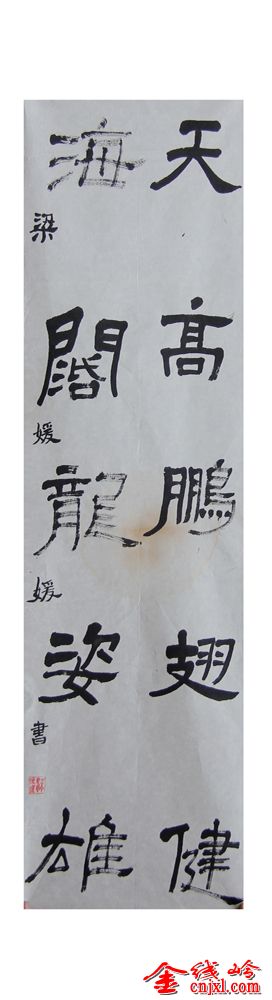 天高鵬翅健
海闊龍姿雄
梁媛媛書
金线岭
cnjxl.com